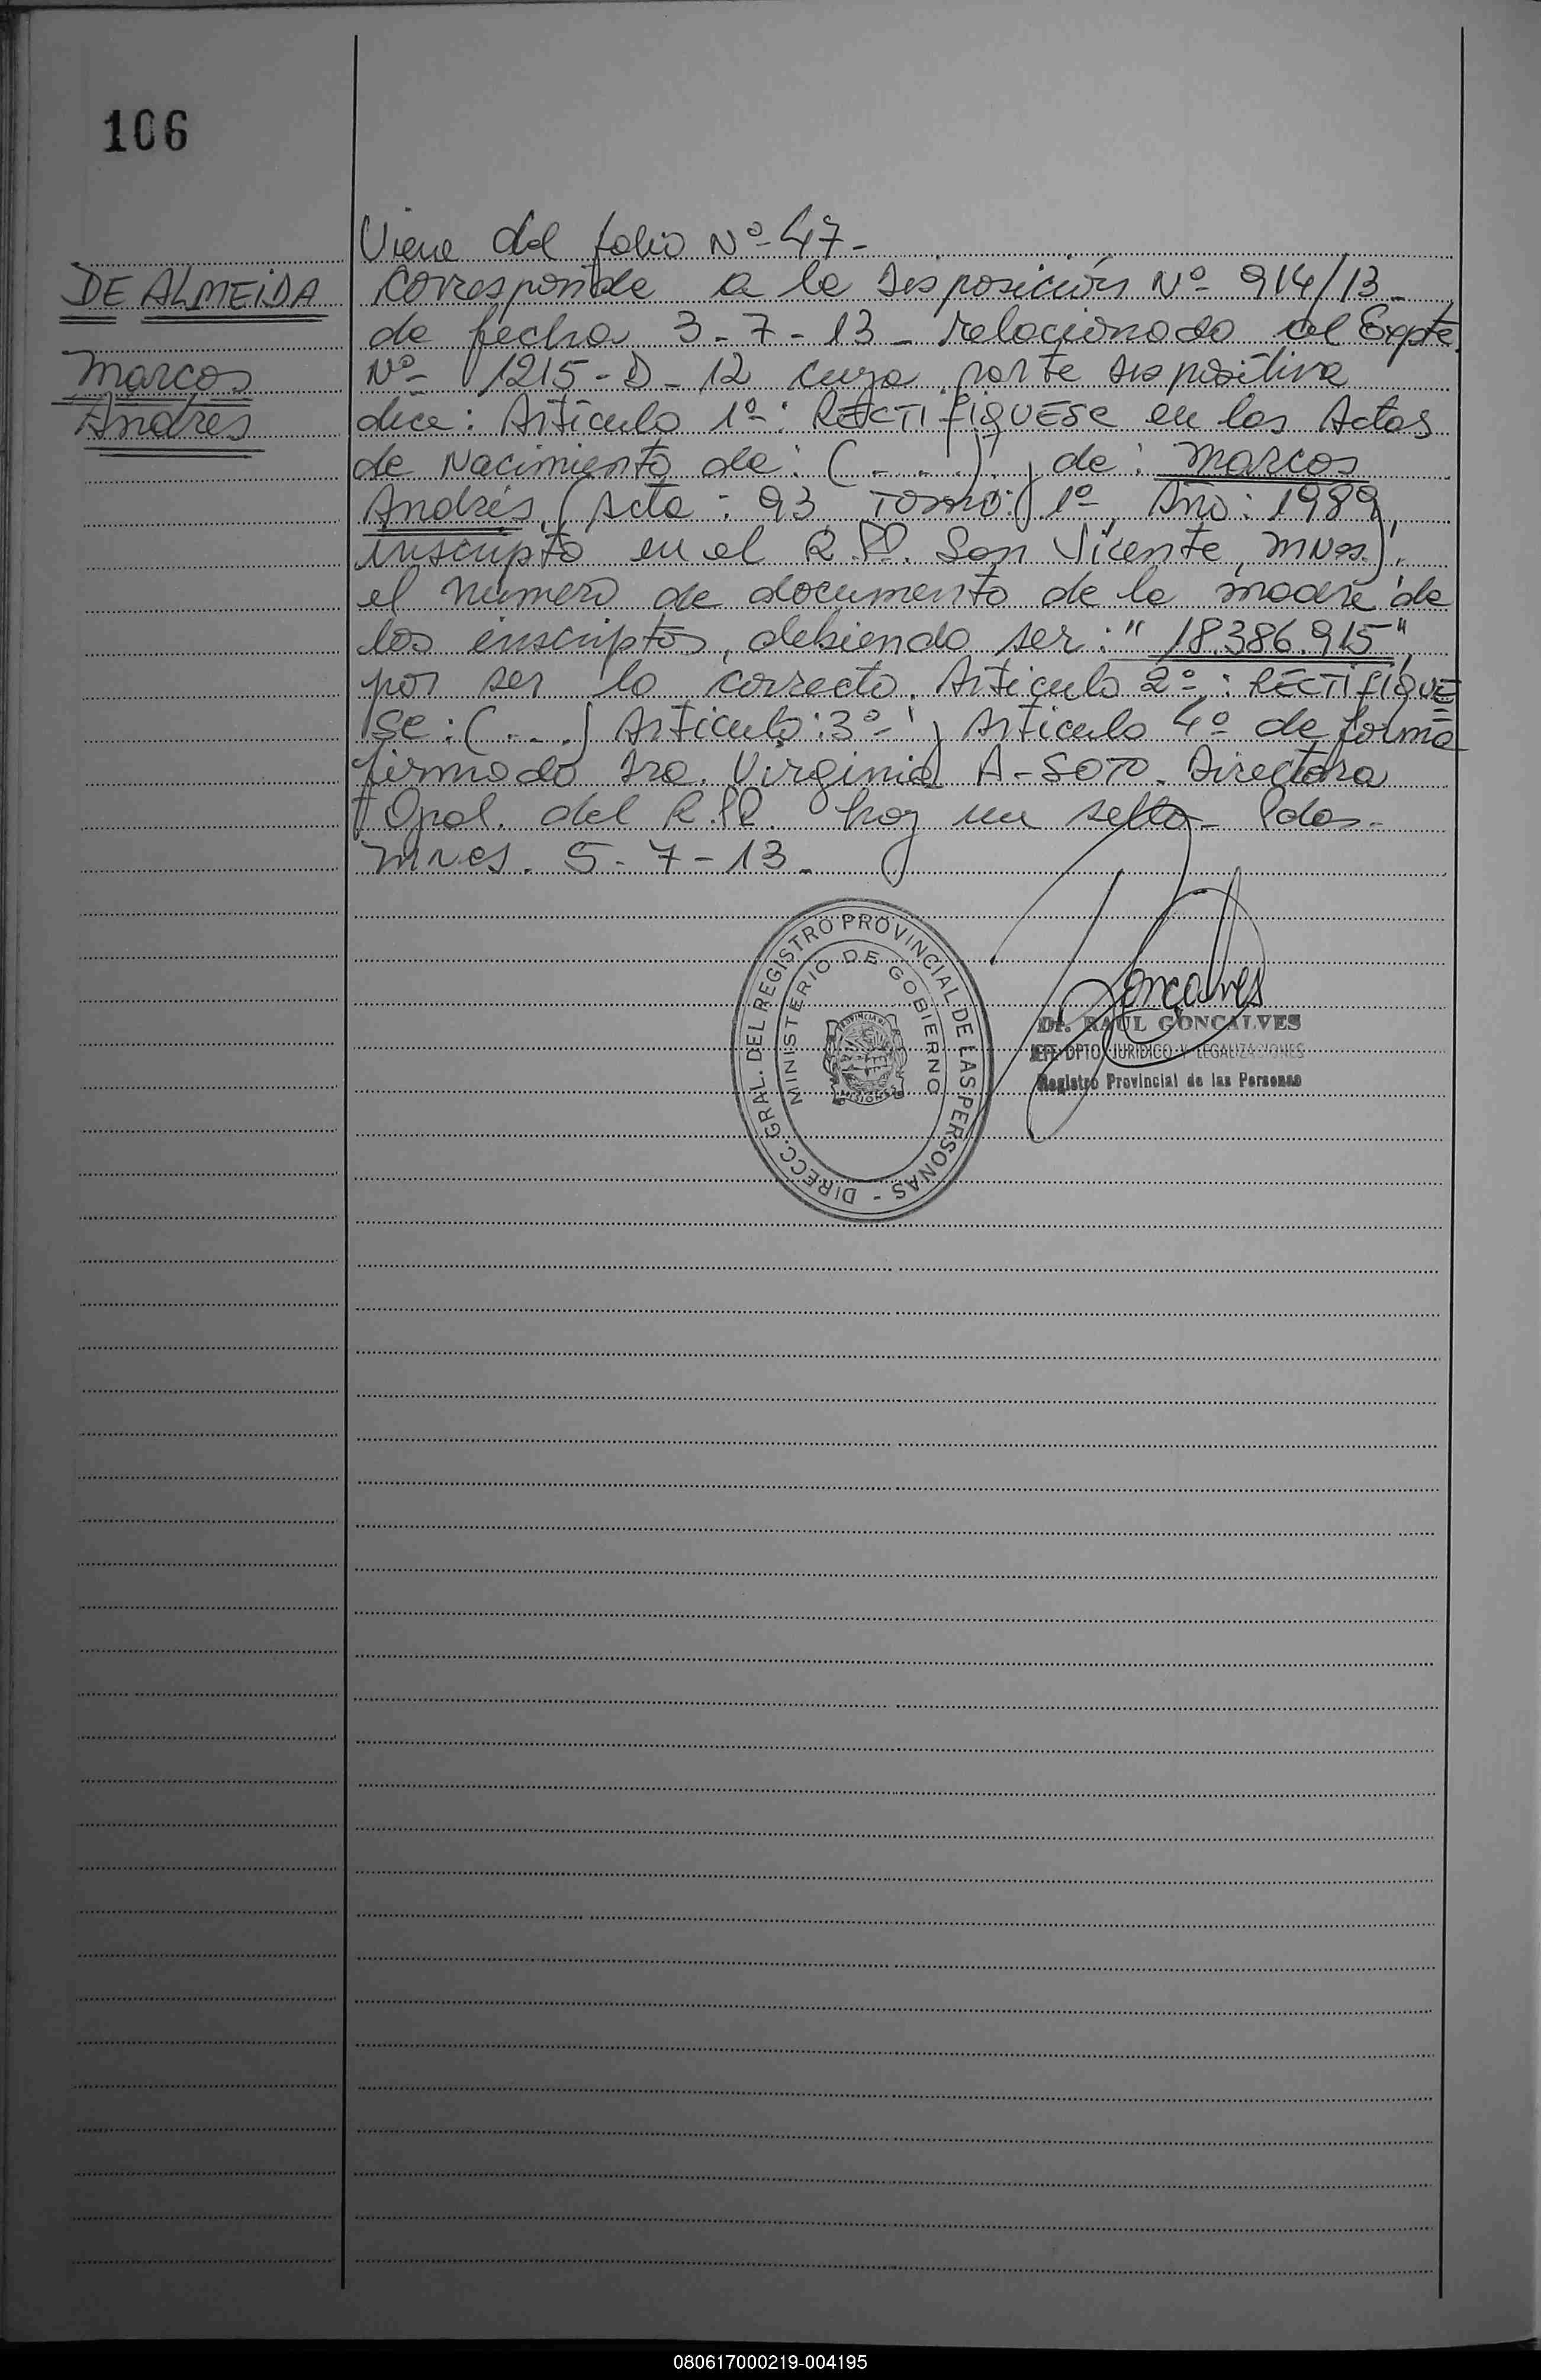 106
DE ALMEIDA
Marcos
Andrés
Viene del folio Nº 47-
Corresponde a la Disposición Nº 914/13-
de fecha 3-7-13- relacionado al Expte
Nº 1215-D-12 cuya parte dispositiva
dice: Artículo 1º: RECTIFIQUESE en las Actas
de Nacimiento de: (...) y de: Marcos
Andrés (Acta: 93 Tomo: 1º, Año: 1989,
inscripto en el R.P.P. San Vicente, Mnes.),
el número de documento de la madre de
los inscriptos, debiendo ser: "18.386.915",
por ser lo correcto. Artículo 2º: RECTIFIQUE
SE: (...) Artículo: 3º y Artículo 4º de forma
firmado Dra. Virginia A-SOTO. Directora
Gral. del R.P.P. hay un sello- Pdas-
Mnes. 5-7-13-
DIRECC. GRAL. DEL REGISTRO PROVINCIAL DE LAS PERSONAS -
MINISTERIO DE GOBIERNO
PROVINCIA DE
MISIONES
Goncalves
Dr. RAUL GONCALVES
JEFE DPTO JURIDICO Y LEGALIZACIONES
Registro Provincial de las Personas
080617000219-004195